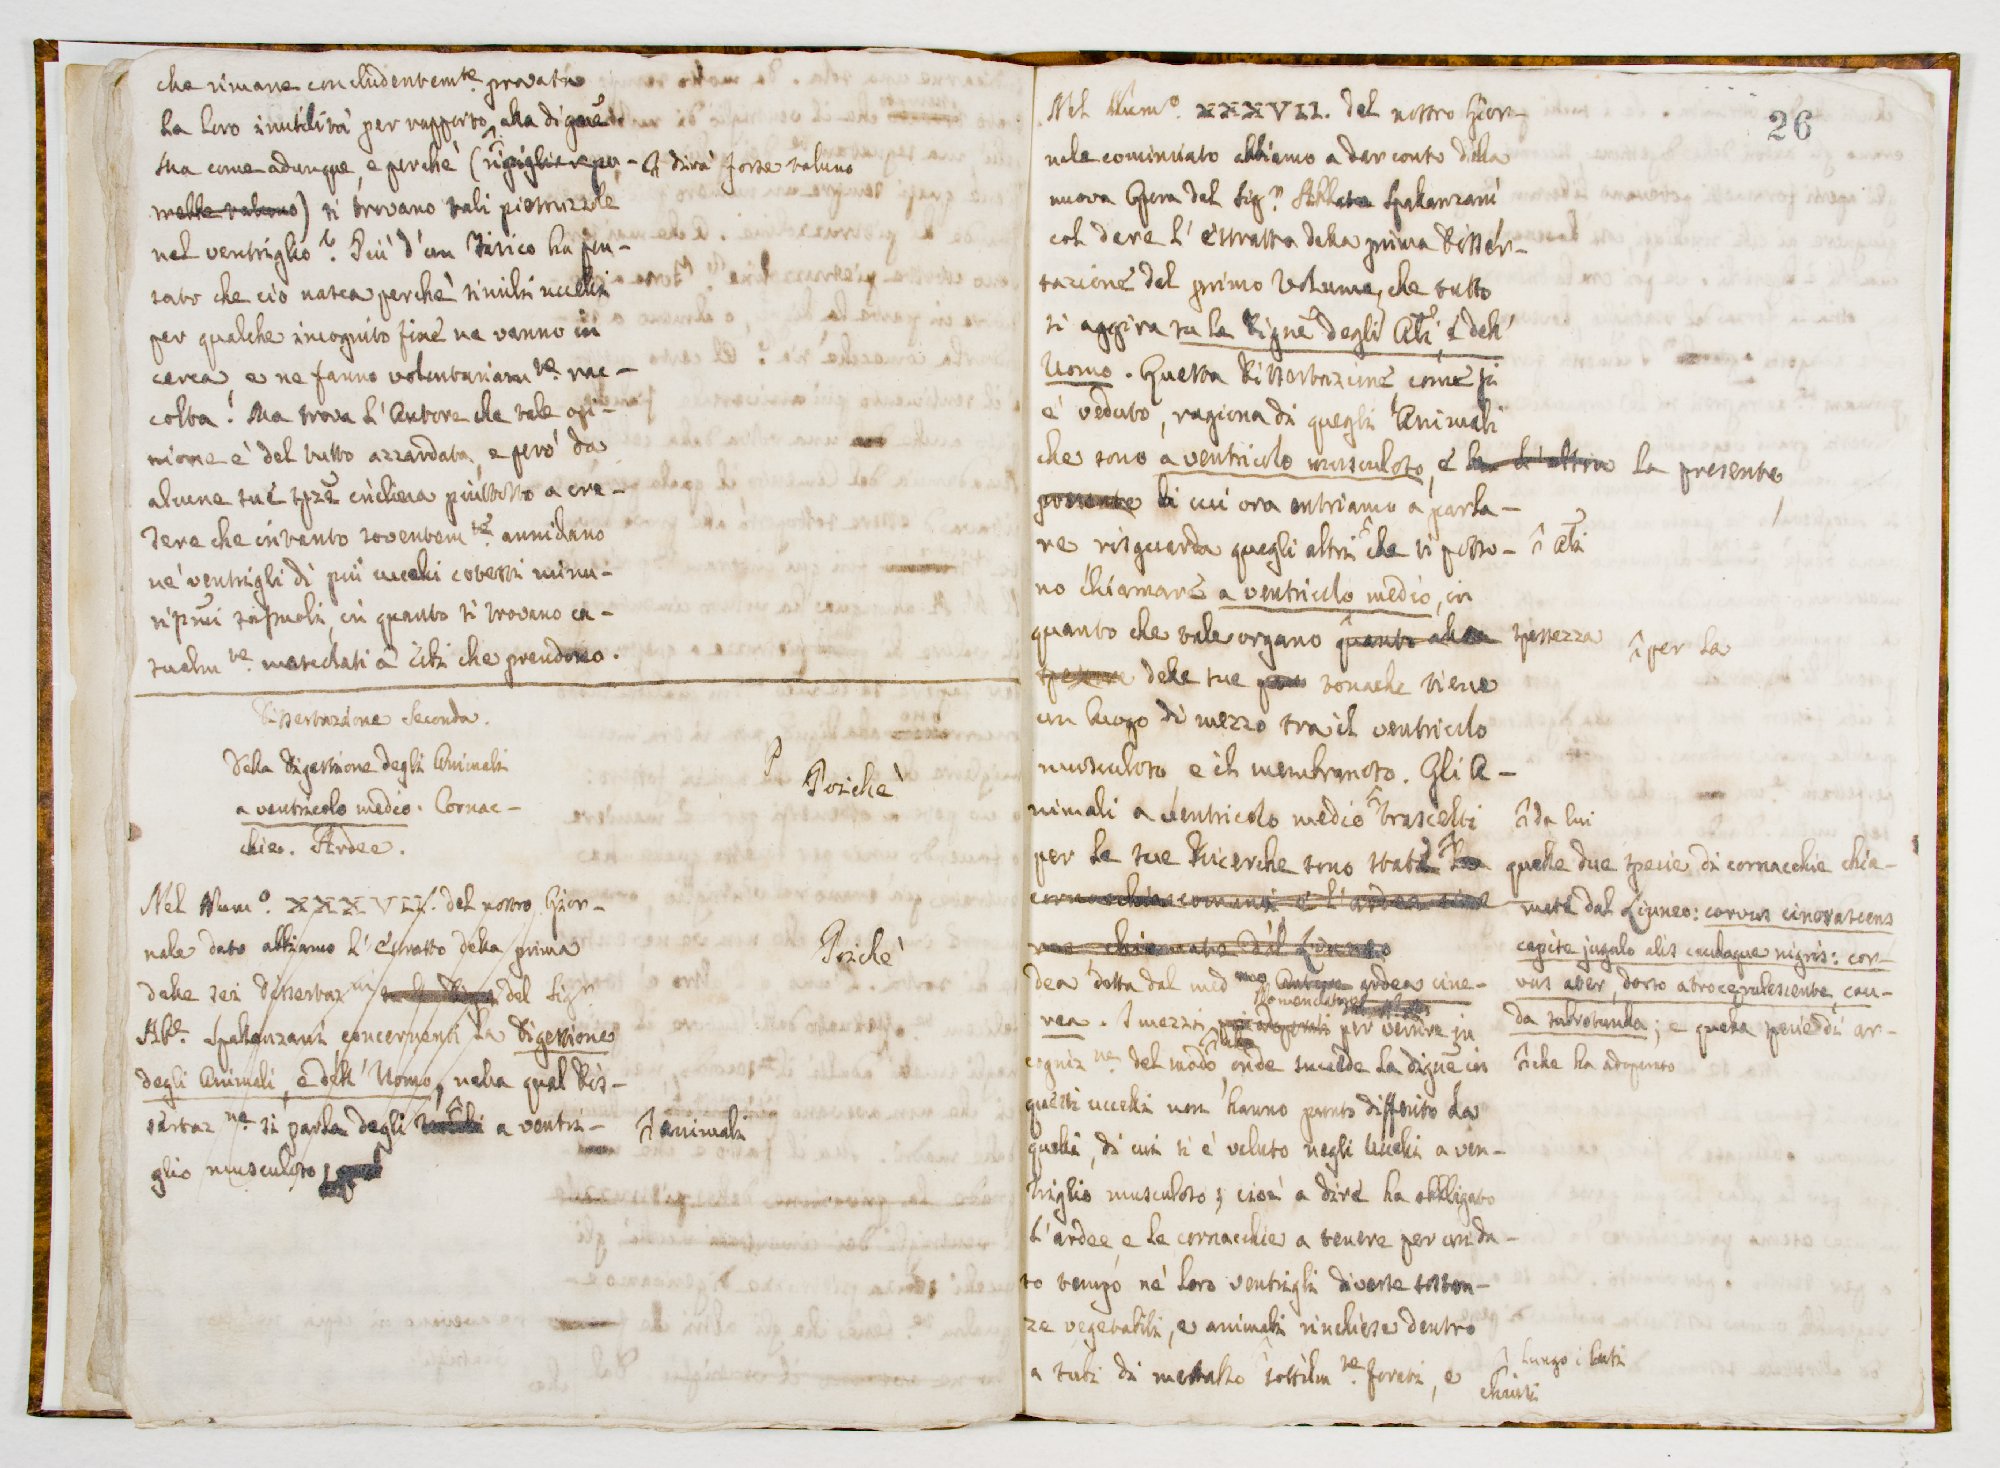 che rimane concludentem.te provata
la loro inutilità per rapporto alla digne.
Ma come adunque, e perchè (ripiglierà per-
mettè taluno) si trovano tali pietruzzole
si dirà forse taluno
nel ventriglio? Più d'un Fisico ha pen-
sato che ciò nasca perchè simili uccelli
per qualche incognito fine ne vanno in
cerca, e ne fanno voluntariam.te rac-
colta. Ma trova l'Autore che tale opi-
nione è del tutto azzardata, e però da
alcune sue spze inclina piuttosto a cre-
dere che in tanto soventem.te annidano
ne' ventrigli di più uccelli cotesti minu-
, in quanto si trovano ca-
sualm.te mescolati a' cibi che prendono.
Dissertazione Seconda.
Della Digestione degli Animali
a ventricolo medio. Cornac-
chie. Ardee.
P
Poichè
Nel Num.o XXXVII. del nostro Gior-
nale dato abbiamo l'Estratto della prima
delle sei Dissertaz.ni del Sig.r
Ab.e Spallanzani concernenti la Digestione
degli Animali, e dell'Uomo, nella qual Dis-
sertaz.ne si parla degli a ventri-
animali
glio musculoso,
Poichè
26
Nel Num.o XXXVII. del nostro Gior-
nale cominciato abbiamo a dar conto della
nuova Opera del Sig.r Abbate Spallanzani
col dare l'estratto della prima Disser-
tazione del primo Volume, che tutto
si aggira su la Digne degli Ali, e dell'
Uomo. Questa Dissertazione come si
è veduto, ragiona di quegli Animali
che sono a ventricolo musculoso, e la l'altra la presente
di cui ora entriamo a parla-
re risguarda quegli altri che si posso-
Ali
no chiamare a ventricolo medio, in
quanto che tale organo quanto alla spessezza
per la
delle sue tonache tiene
un luogo di mezzo tra il ventricolo
musculoso e il membranoso. Gli A-
nimali a ventricolo medio trascelti
da lui
per le sue Ricerche sono state le quelle due specie di cornacchie chia-
cornacchie comuni e l'ardea cine
mate dal Linneo: corvus cinerascens
rea chiamate dal Linneo
capite jugulo alis caudaque nigris: cor-
vus ater, dorso atrocaerulescente, cau-
da subrotunda; e quella specie di ar-
dea detta dal med.mo Autore ardea cine-
Nomenclatore
rea. I mezzi per venire in
che ha adoperato
cogniz.ne del modo, onde succede la digne in
questi uccelli non hanno punto differito da
quelli, di cui si è veduto negli Uccelli a ven-
triglio musculoso; cioè a dire ha obbligato
l'ardee, e le cornacchie a tenere per un da-
to tempo ne' loro ventrigli diverse sostan-
ze vegetabili, e animali rinchiese dentro
a tubi di metallo sottilm.te forati, e
lungo i lati
chiusi